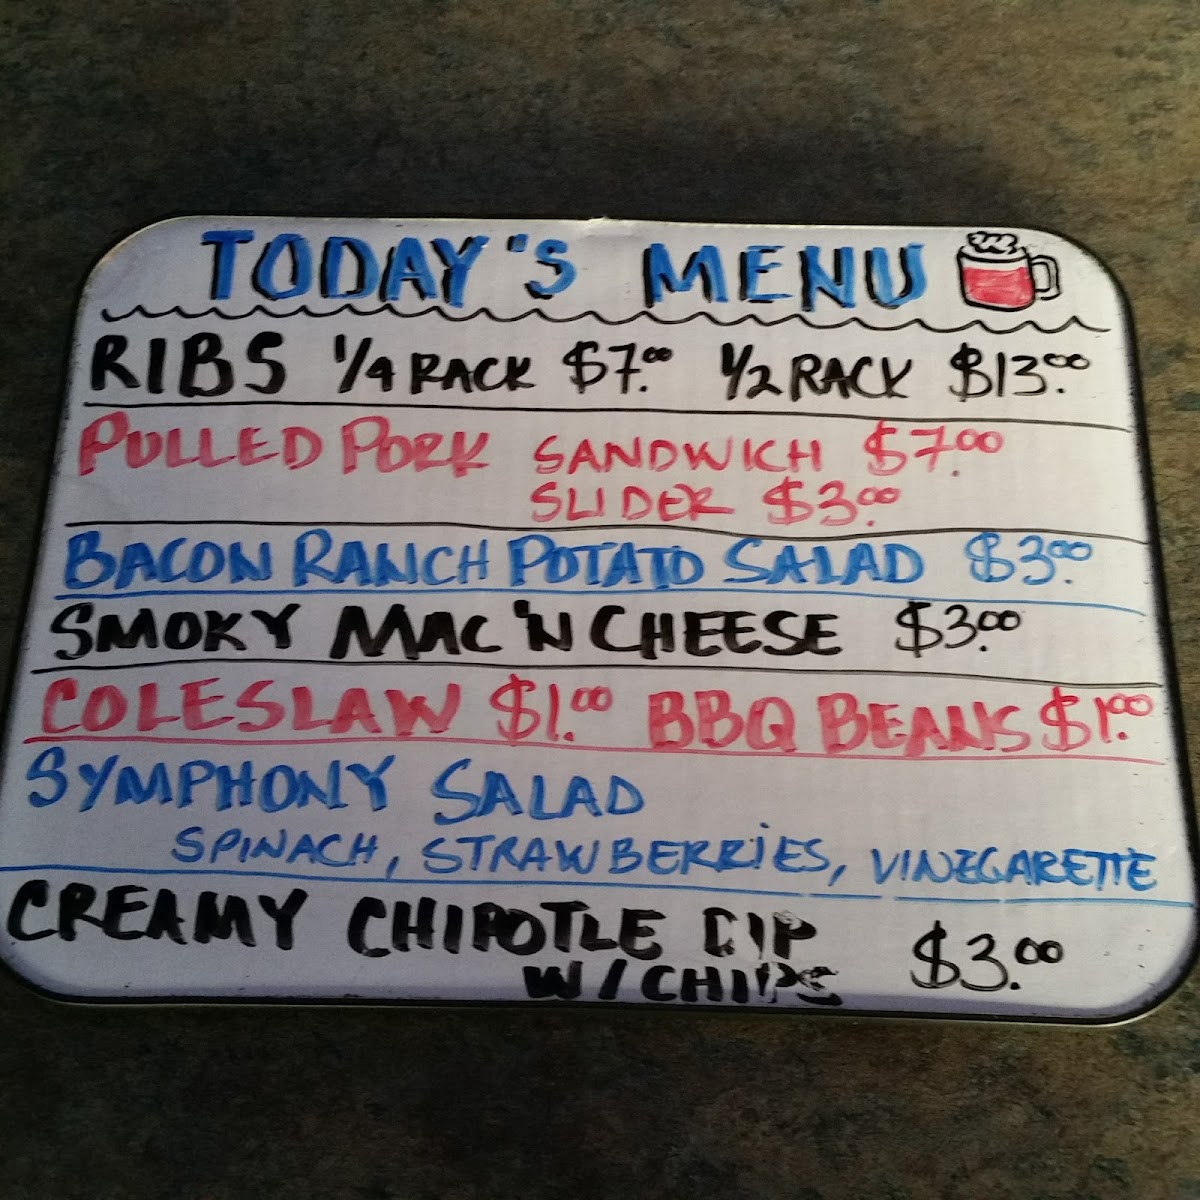 TODAY'S MENU
RIBS 1/4 RACK $7.00 1/2 RACK $13.00
PULLED PORK SANDWICH $7.00
SLIDER $3.00
BACON RANCH POTATO SALAD $3.00
SMOKY MAC 'N CHEESE $3.00
COLESLAW $1.00 BBQ BEANS $1.00
SYMPHONY SALAD
SPINACH, STRAWBERRiES, VINEGARETTE
CREAMY CHIPOTLE DIP $3.00
W/CHIPS